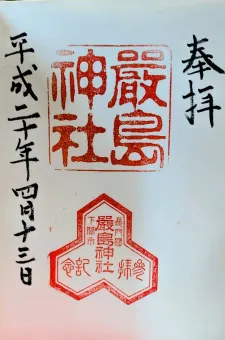 奉拝
嚴島
神社
平成二十年四月十三日
長門國
嚴島神社
下関市
参拝
記念